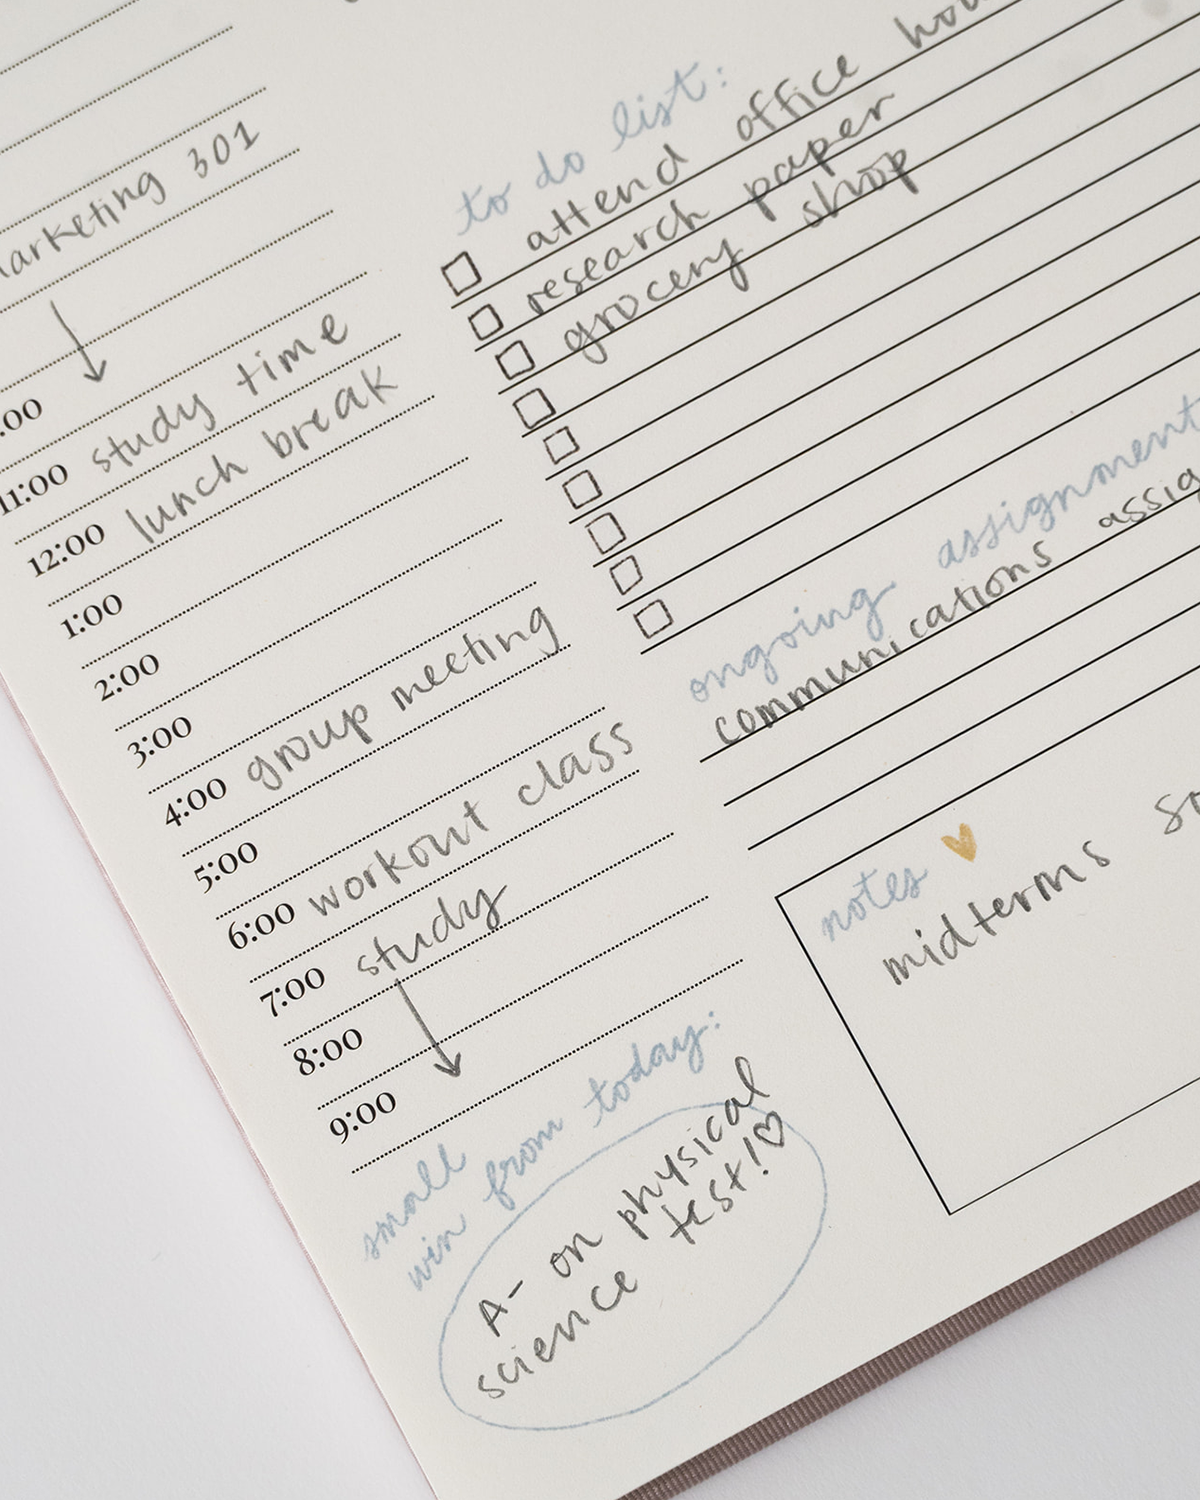 marketing 301
:00
11:00 study time
12:00 lunch break
1:00
2:00
3:00
4:00 group meeting
5:00
6:00 workout class
7:00 study
8:00
9:00
small
win from today:
A- on physical
science test!
to do list:
attend office
research paper
grocery shop
ongoing assignment
communications
notes
midterms